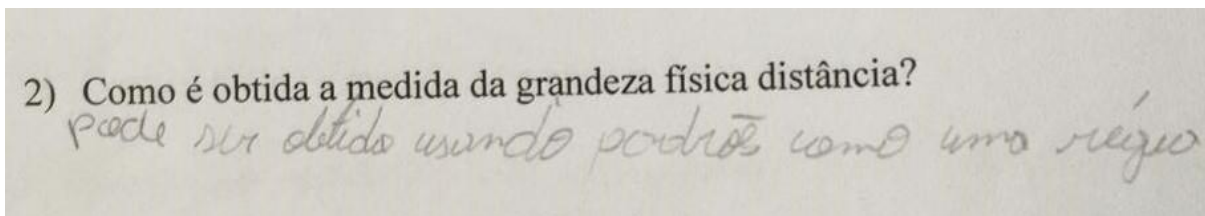 2) Como é obtida a medida da grandeza física distância?
pode ser obtida usando padrões como uma régua